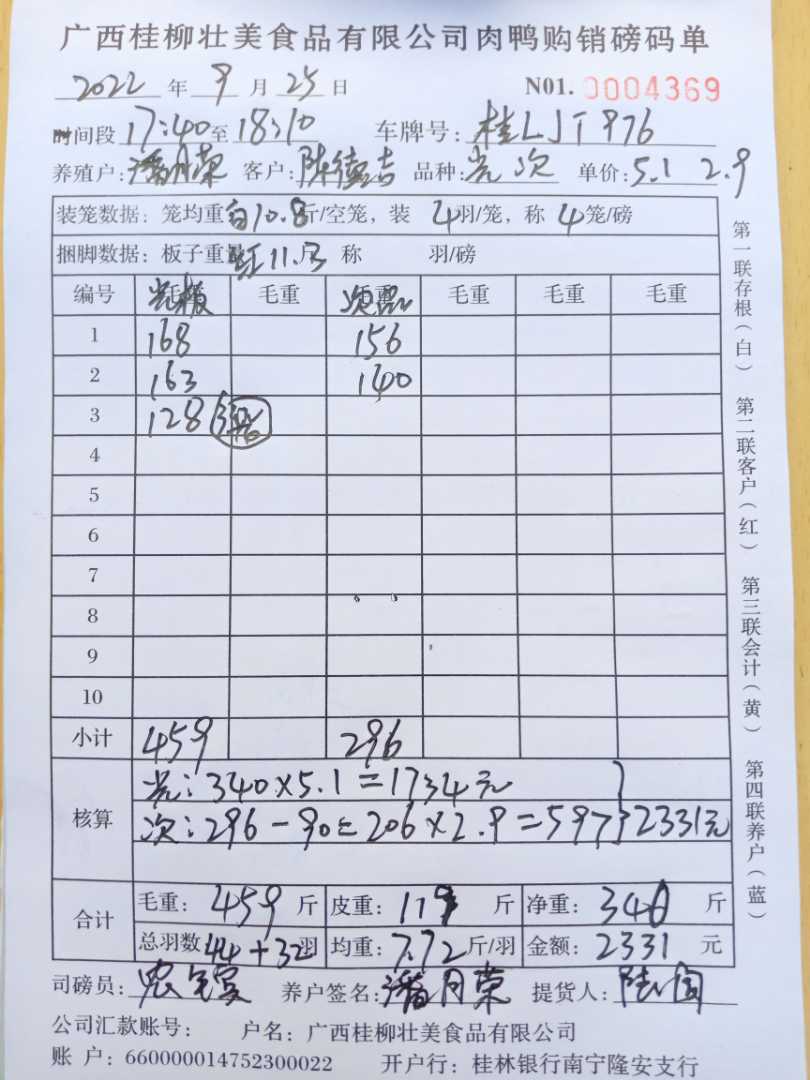 广西桂柳壮美食品有限公司肉鸭购销磅码单
2022年9月25日 N01.0004369
时间段17:40至18:10 车牌号:桂LJT976
养殖户:潘月荣 客户:陈德吉 品种:光次 单价:5.1 2.9
装笼数据:笼均重白10.8斤/空笼,装4羽/笼,称4笼/磅
捆脚数据:板子重红11.3斤 称 羽/磅
编号 光板 毛重 次品 毛重 毛重 毛重
1 168 156
2 163 140
3 128
4
5
6
7
8
9
10
小计 459 296
核算
光:340×5.1=1734元
次:296-90=206×2.9=597 } 2331元
合计
毛重:459斤 皮重:119斤 净重:340斤
总羽数44+32羽 均重:7.72斤/羽 金额:2331元
司磅员: 养户签名:潘月荣 提货人:
公司汇款账号: 户名:广西桂柳壮美食品有限公司
账 户:660000014752300022 开户行:桂林银行南宁隆安支行
第一联存根(白) 第二联客户(红) 第三联会计(黄) 第四联养户(蓝)